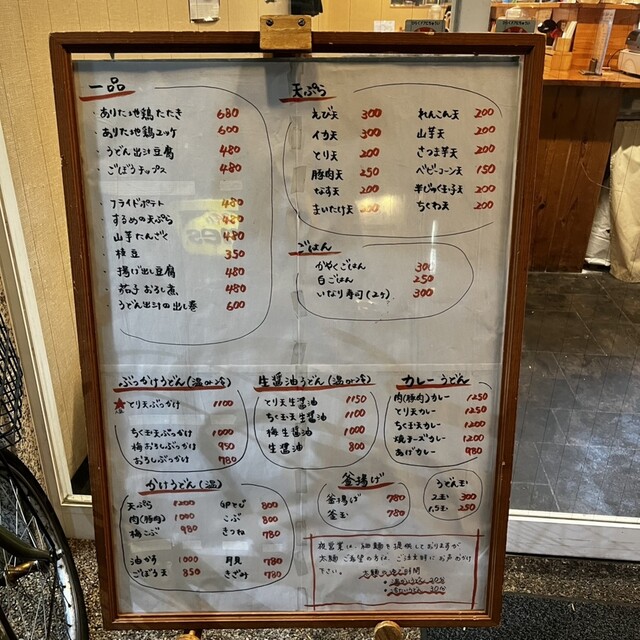 一品
ありた地鶏たたき 680
ありた地鶏ユッケ 600
うどん出汁豆腐 480
ごぼうチップス 480
フライドポテト 480
するめの天ぷら 480
山芋たんざく 480
枝豆 350
揚げ出し豆腐 480
茄子おろし煮 480
うどん出汁の出し巻 600
天ぷら
えび天 300
イカ天 300
とり天 200
豚肉天 250
なす天 200
まいたけ天
れんこん天 200
山芋天 200
さつま芋天 200
ベビーコーン天 150
半じゅく玉子天 200
ちくわ天 200
ごはん
かやくごはん 300
白ごはん 250
いなり寿司(2ヶ) 300
ぶっかけうどん(温or冷)
★とり天ぶっかけ 1100
ちく玉天ぶっかけ 1000
梅おろしぶっかけ 950
おろしぶっかけ 780
生醤油うどん(温or冷)
とり天生醤油 1150
ちく玉天生醤油 1100
梅生醤油 1000
生醤油 800
カレーうどん
肉(豚肉)カレー 1250
とり天カレー 1250
ちく玉天カレー 1200
焼チーズカレー 1200
あげカレー 980
かけうどん(温)
天ぷら 1200
肉(豚肉) 1000
梅こぶ 980
油かす 1000
ごぼう天 850
卵とじ 800
こぶ 800
きつね 780
月見 780
きざみ 780
釜揚げ
釜揚げ 780
釜玉 780
うどん玉
2玉 300
1.5玉 250
夜営業は、細麺を提供しておりますが
太麺ご希望の方は、ご注文時にお声がけ
下さい。